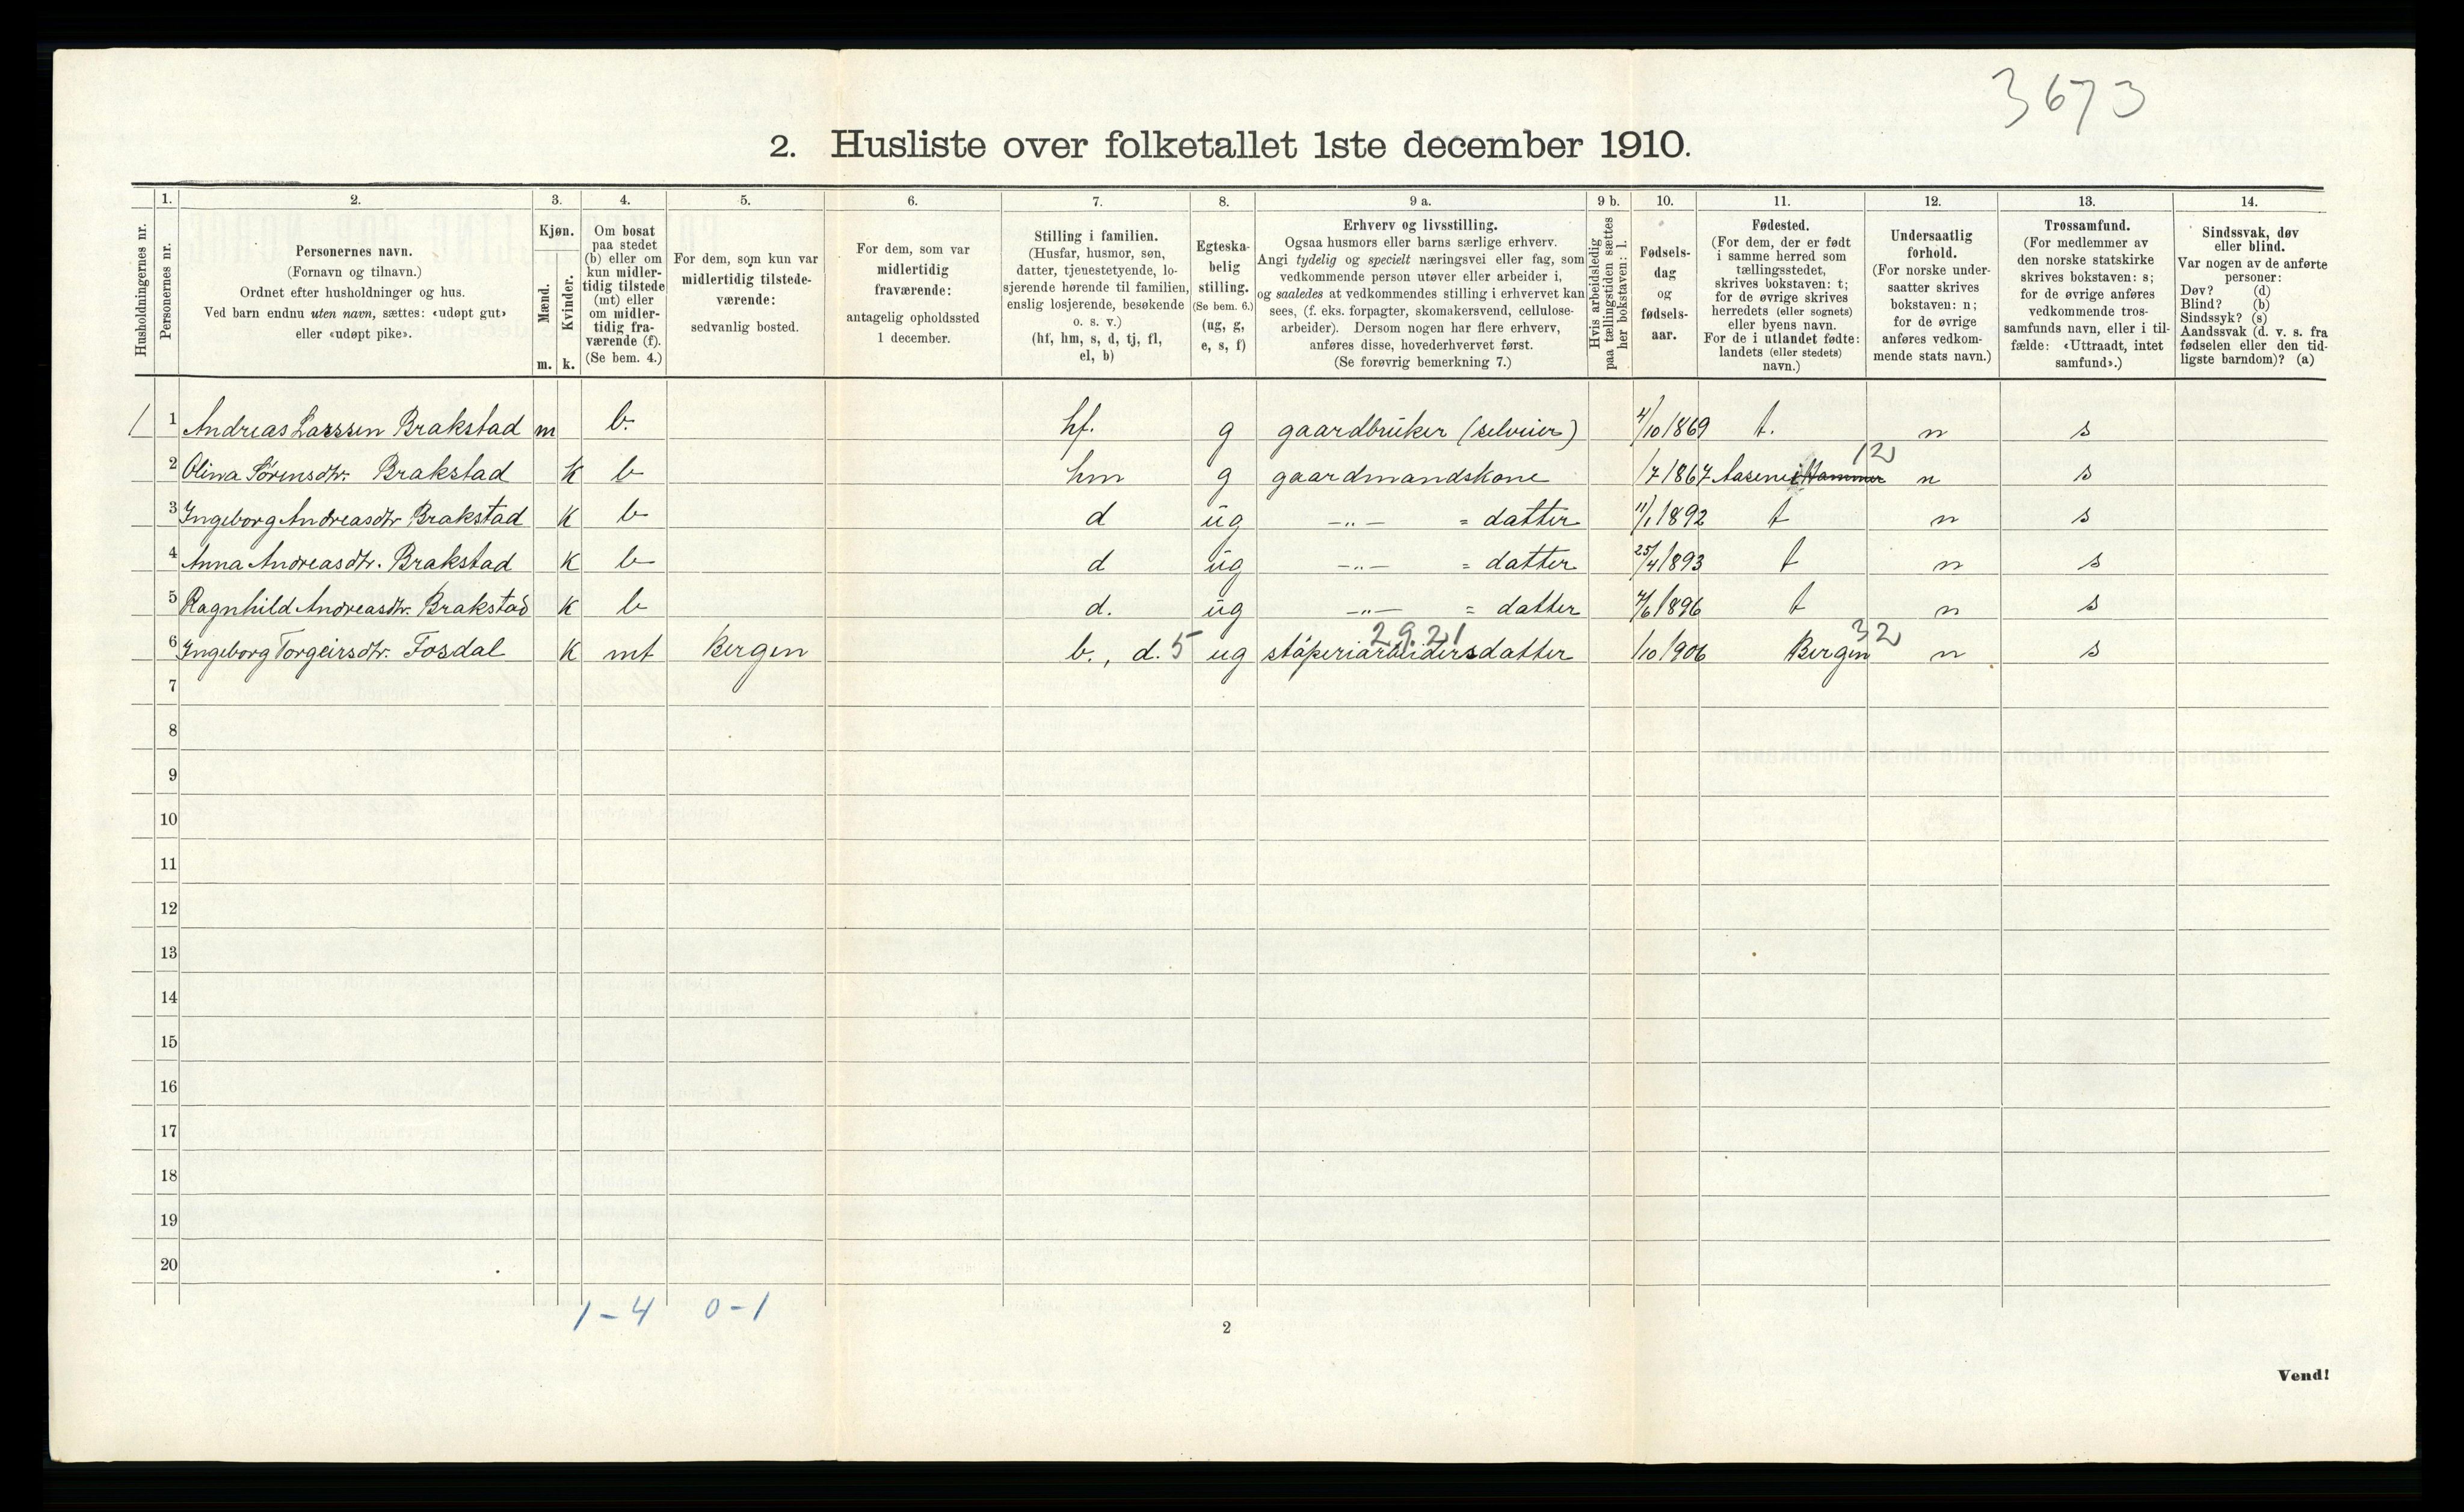 3673
2. Husliste over folketallet 1ste december 1910.
Husholdningernes nr.
1.
Personernes nr.
2.
Personernes navn.
(Fornavn og tilnavn.)
Ordnet efter husholdninger og hus.
Ved barn endnu uten navn, sættes: «udøpt gut»
eller «udøpt pike».
3.
Kjøn.
Mænd.
Kvinder.
m. k.
4.
Om bosat
paa stedet
(b) eller om
kun midler-
tidig tilstede
(mt) eller
om midler-
tidig fra-
værende (f).
(Se bem. 4.)
5.
For dem, som kun var
midlertidig tilstede-
værende:
sedvanlig bosted.
6.
For dem, som var
midlertidig
fraværende:
antagelig opholdssted
1 december.
7.
Stilling i familien.
(Husfar, husmor, søn,
datter, tjenestetyende, lo-
sjerende hørende til familien,
enslig losjerende, besøkende
o. s. v.)
(hf, hm, s, d, tj, fl,
el, b)
8.
Egteska-
belig
stilling.
(Se bem. 6.)
(ug, g,
e, s, f)
9 a.
Erhverv og livsstilling.
Ogsaa husmors eller barns særlige erhverv.
Angi tydelig og specielt næringsvei eller fag, som
vedkommende person utøver eller arbeider i,
og saaledes at vedkommendes stilling i erhvervet kan
sees, (f. eks. forpagter, skomakersvend, cellulose-
arbeider). Dersom nogen har flere erhverv,
anføres disse, hovederhvervet først.
(Se forøvrig bemerkning 7.)
9 b.
Hvis arbeidsledig
paa tællingstiden sættes
her bokstaven: l.
10.
Fødsels-
dag
og
fødsels-
aar.
11.
Fødested.
(For dem, der er født
i samme herred som
tællingsstedet,
skrives bokstaven: t;
for de øvrige skrives
herredets (eller sognets)
eller byens navn.
For de i utlandet fødte:
landets (eller stedets)
navn.)
12.
Undersaatlig
forhold.
(For norske under-
saatter skrives
bokstaven: n;
for de øvrige
anføres vedkom-
mende stats navn.)
13.
Trossamfund.
(For medlemmer av
den norske statskirke
skrives bokstaven: s;
for de øvrige anføres
vedkommende tros-
samfunds navn, eller i til-
fælde: «Uttraadt, intet
samfund».)
14.
Sindssvak, døv
eller blind.
Var nogen av de anførte
personer:
Døv? (d)
Blind? (b)
Sindssyk? (s)
Aandssvak (d. v. s. fra
fødselen eller den tid-
ligste barndom)? (a)
1 1 Andreas Larssen Brakstad m b. hf. g gaardbruker (selveier) 4/10 1869 t. n s
12
2 Olina Sørensdtr. Brakstad k b hm g gaardmandskone 1/7 1867 Aasene i Hammer n s
3 Ingeborg Andreasdtr Brakstad k b d ug -"- = datter 11/1 1892 t n s
4 Anna Andreasdtr. Brakstad k b d ug -"- = datter 25/4 1893 t n s
5 Ragnhild Andreasdtr. Brakstad k b d. ug -"- = datter 1896 t n s
2921 32
6 Ingeborg Torgeirsdtr. Fosdal k mt Bergen b., d. 5 ug støperiarbeidersdatter 1/10 1906 Bergen n s
7
8
9
10
11
12
13
14
15
16
17
18
19
20
1-4 0-1
2
Vend!